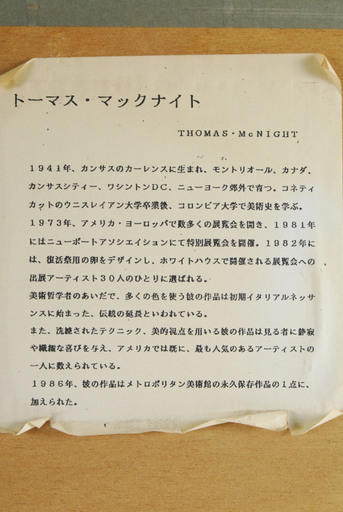 トーマス・マックナイト
THOMAS・McNIGHT
1941年、カンサスのカーレンスに生まれ、モントリオール、カナダ、
カンサスシティー、ワシントンDC、ニューヨーク郊外で育つ。コネティ
カットのウニスレイアン大学卒業後、コロンビア大学で美術史を学ぶ。
1973年、アメリカ・ヨーロッパで数多くの展覧会を開き、1981年
にはニューポートアソシエイションにて特別展覧会を開催。1982年に
は、復活祭用の卵をデザインし、ホワイトハウスで開催される展覧会への
出展アーティスト30人のひとりに選ばれる。
美術哲学者のあいだで、多くの色を使う彼の作品は初期イタリアルネッサ
ンスに始まった、伝統の延長といわれている。
また、洗練されたテクニック、美的視点を用いる彼の作品は見る者に静寂
や繊細な喜びを与え、アメリカでは既に、最も人気のあるアーティストの
一人に数えられている。
1986年、彼の作品はメトロポリタン美術館の永久保存作品の1点に、
加えられた。